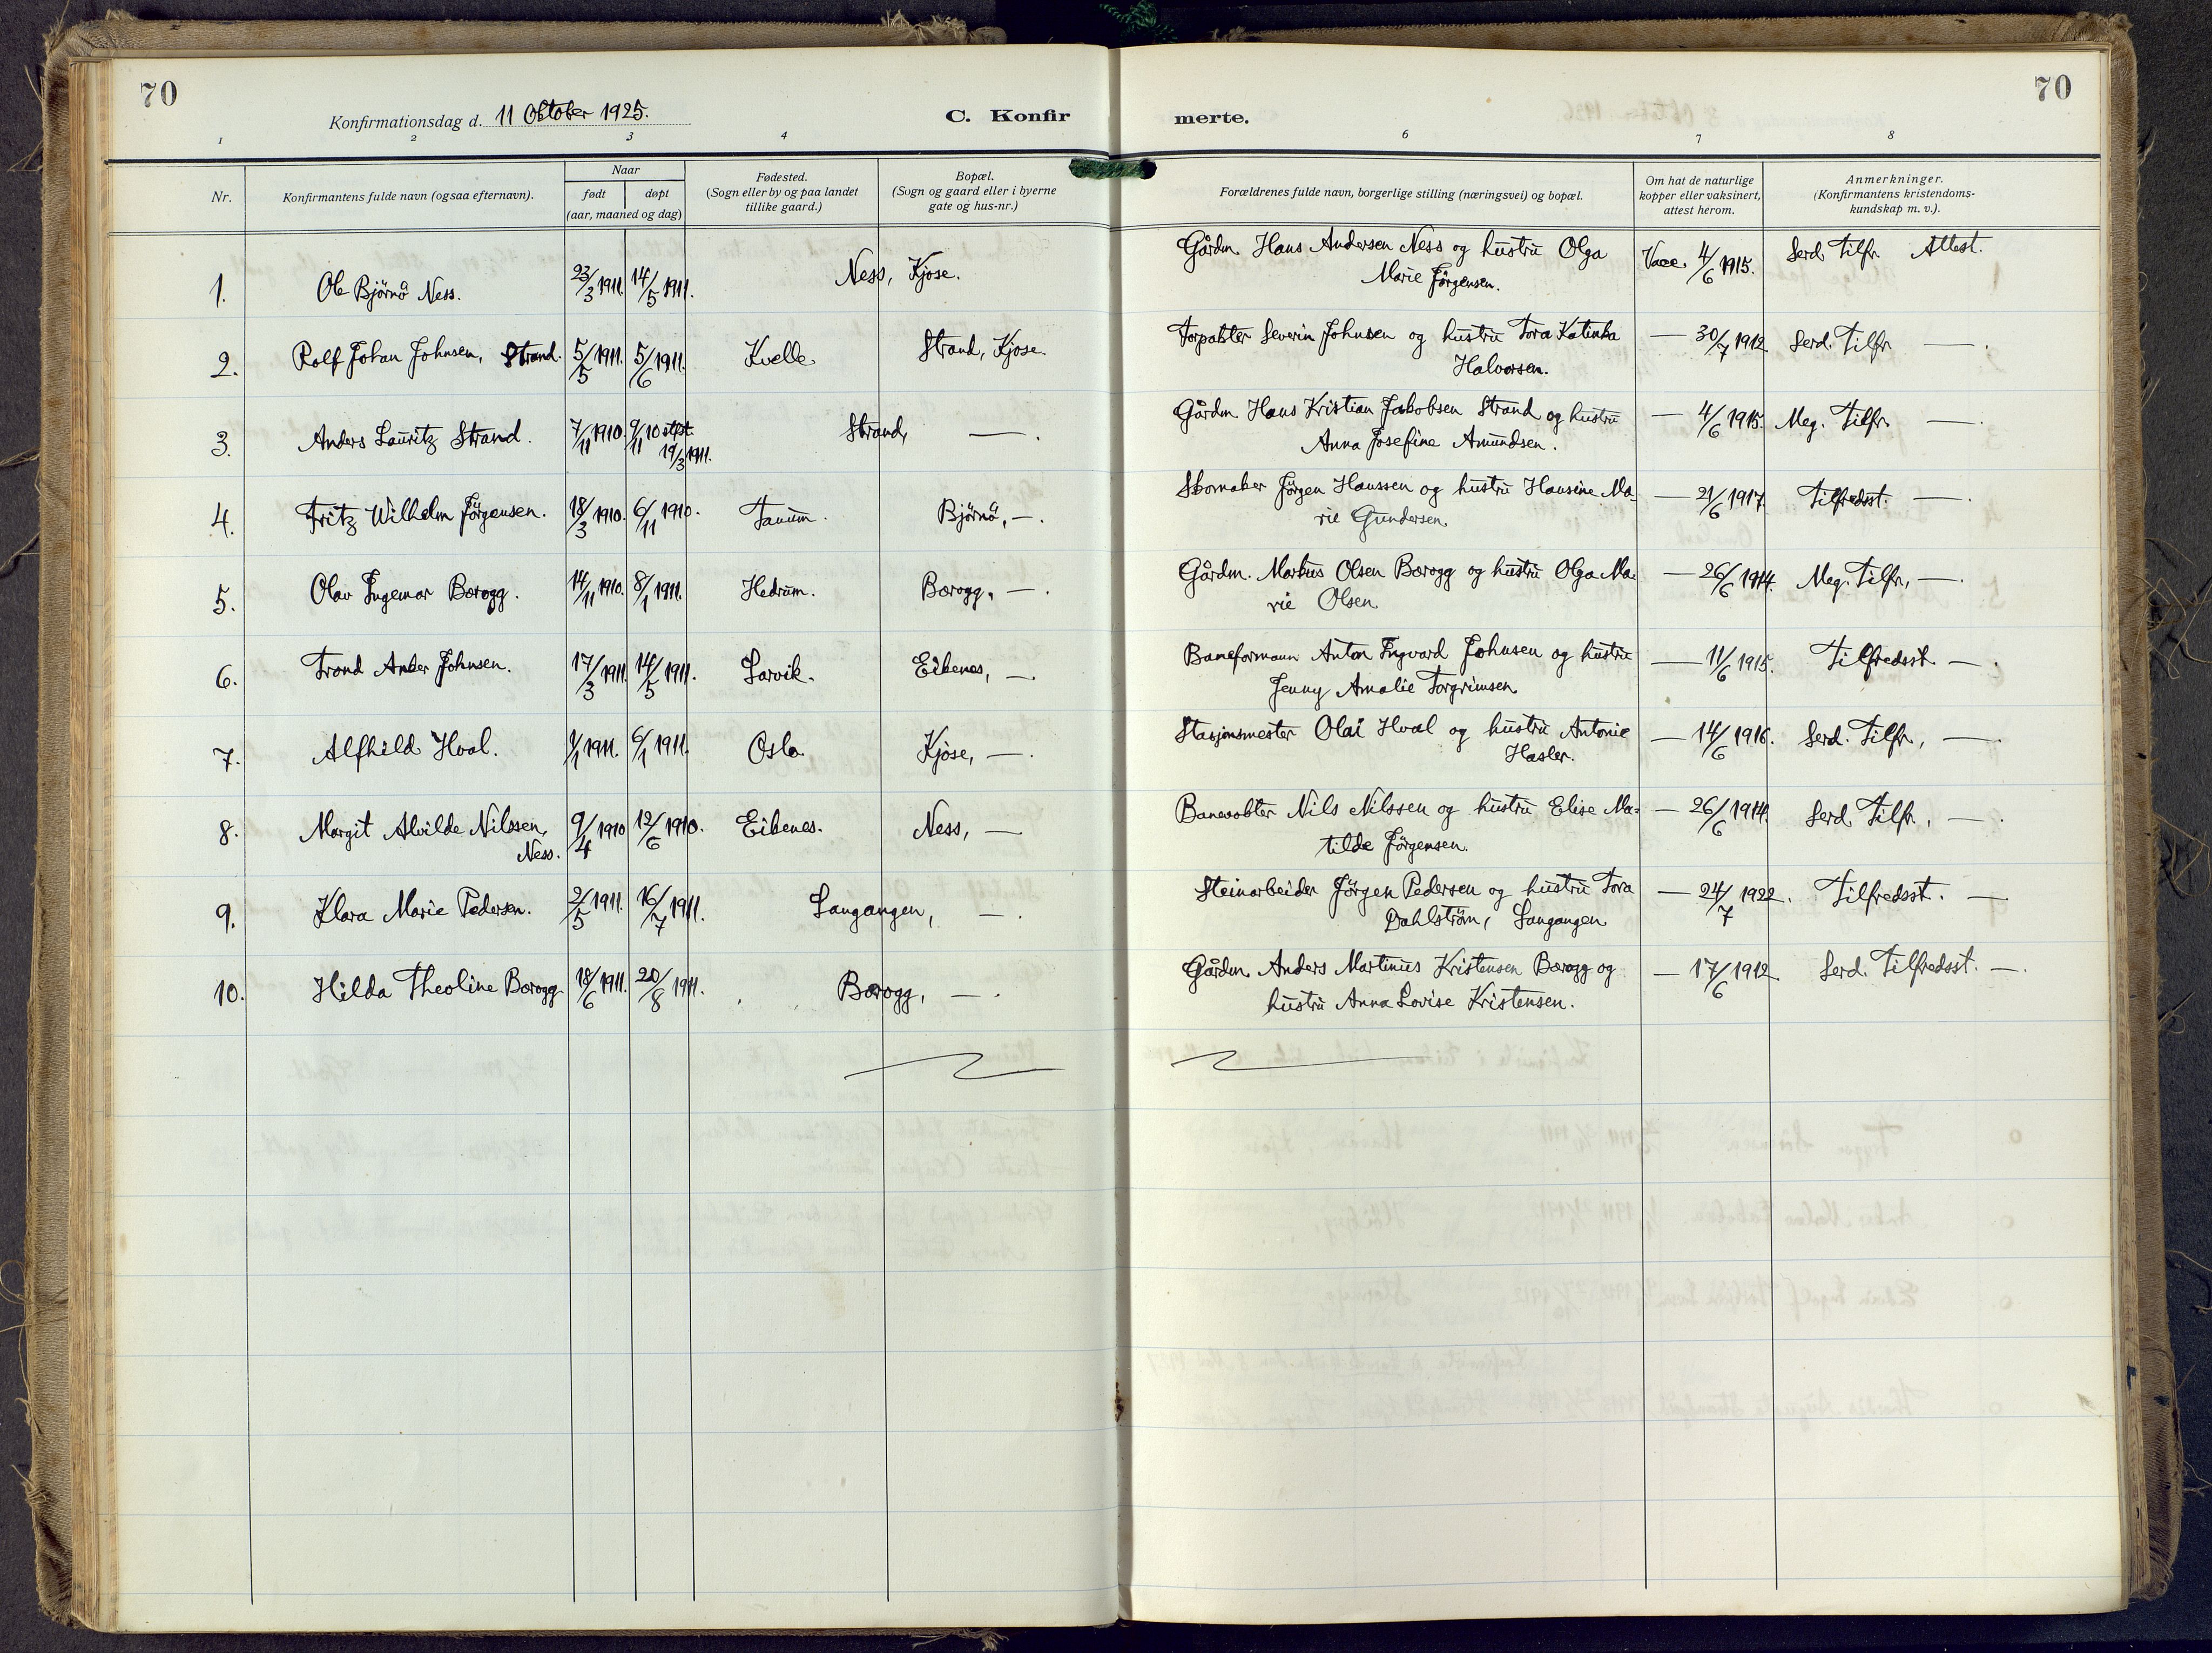 70
Konfirmationsdag d. 11 Oktober 1925.
C. Konfir
merte.
70
1 2 3 4 6 7 8
Nr.
Konfirmantens fulde navn (ogsaa efternavn).
Naar
født døpt
(aar, maaned og dag)
Fødested.
(Sogn eller by og paa landet
tillike gaard.)
Bopæl.
(Sogn og gaard eller i byerne
gate og hus-nr.)
Forældrenes fulde navn, borgerlige stilling (næringsvei) og bopæl.
Om hat de naturlige
kopper eller vaksinert,
attest herom.
Anmerkninger.
(Konfirmantens kristendoms-
kundskap m. v.).
1. Ole Bjørnö Ness. 23/3 1911. 14/5 1911. Ness, Kjose. Gårdm. Hans Andersen Ness og hustru Olga Vacc. 4/6 1915. Serd. Tilfr. Attest.
Marie Jörgensen.
2. Rolf Johan Johnsen, Strand. 5/5 1911. 5/6 1911. Kvelle. Strand, Kjose. Forpakter Severin Johnsen og hustru Tora Katinka — 30/7 1912 Serd. Tilfr —.
Halvorsen.
3. Anders Lauritz Strand. 7/11 1910. 9/11 10 stfst. Strand, —. Gårdm Hans Kristian Jakobsen Strand og hustru — 4/6 1915. Meg. Tilfr. —.
19/3 1911. Anna Josefine Amundsen.
4. Fritz Wilhelm Jörgensen. 18/3 1910. 6/11 1910. Tanum. Björnö, —. Skomaker Jörgen Hanssen og hustru Hansine Ma- — 21/6 1917. Tilfredsst. —.
rie Gundersen.
5. Olav Ingemar Barogg. 14/11 1910. 8/1 1911. Hedrum. Barogg, —. Gårdm. Markus Olsen Barogg og hustru Olga Ma- — 26/6 1914. Meg. Tilfr, —.
rie Olsen
6. Trond Anker Johnsen. 17/3 1911. 14/5 1911. Larvik. Eikenes, — Baneformann Anton Ingvard Johnsen og hustru — 11/6 1915. Tilfredsst. —.
Jenny Amalie Torgrimsen
7. Alfhild Hval. 1/1 1911. 6/1 1911. Oslo Kjose, —. Stasjonsmester Olai Hval og hustru Antonie — 14/6 1916. Serd. Tilfr, —.
Hasler.
8. Margit Alvilde Nilssen, 9/4 1910 12/6 1910. Eikenes. Ness, — Banevokter Nils Nilssen og hustru Elise Ma- — 26/6 1914. Serd Tilfr, —.
Ness. tilde Jörgensen.
9. Klara Marie Pedersen. 2/5 1911. 16/7 1911. Langangen, —. Steinarbeider Jörgen Pedersen og hustru Tora — 24/7 1922. Tilfredsst. —
Dahlström, Langangen
10. Hilda Theoline Barogg 18/6 1911. 20/8 1911. Barogg, —. Gårdm Anders Martinus Kristensen Barogg og — 17/6 1912 Serd. Tilfredsst. —.
hustru Anna Lovise Kristensen.